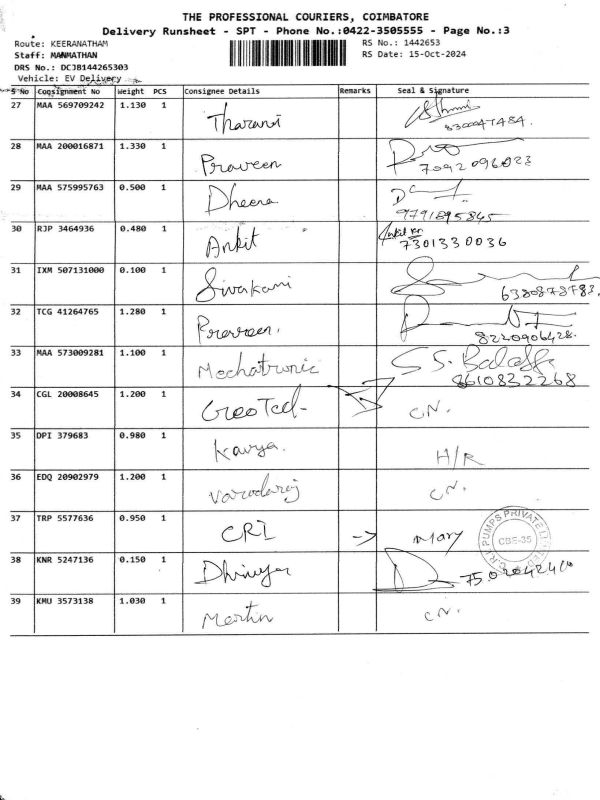 THE PROFESSIONAL COURIERS, COIMBATORE
Delivery Runsheet - SPT - Phone No.:0422-3505555 - Page No.:3
Route: KEERANATHAM RS No.: 1442653
Staff: MANMATHAN RS Date: 15-Oct-2024
DRS No.: DCJB144265303
Vehicle: EV Delivery
S No Consignment No Weight PCS Consignee Details Remarks Seal & Signature
27 MAA 569709242 1.130 1 Tharani
8300047484.
28 MAA 200016871 1.330 1 Praveen
7092096023
29 MAA 575995763 0.500 1 Dheena
9791895845
30 RJP 3464936 0.480 1 Ankit
7301330036
31 IXM 507131000 0.100 1 Sivakami
6380878783.
32 TCG 41264765 1.280 1 Praveen.
8220906428.
33 MAA 573009281 1.100 1 Mechatronic S S. Balaji
8610832268
34 CGL 20008645 1.200 1 CN.
35 DPI 379683 0.980 1 Kavya. H/R
36 EDQ 20902979 1.200 1 Varadaraj CN.
37 TRP 5577636 0.950 1 CRI -> Mary C.R.I. PUMPS PRIVATE LIMITED CBE-35
38 KNR 5247136 0.150 1
39 KMU 3573138 1.030 1 Martin CN.